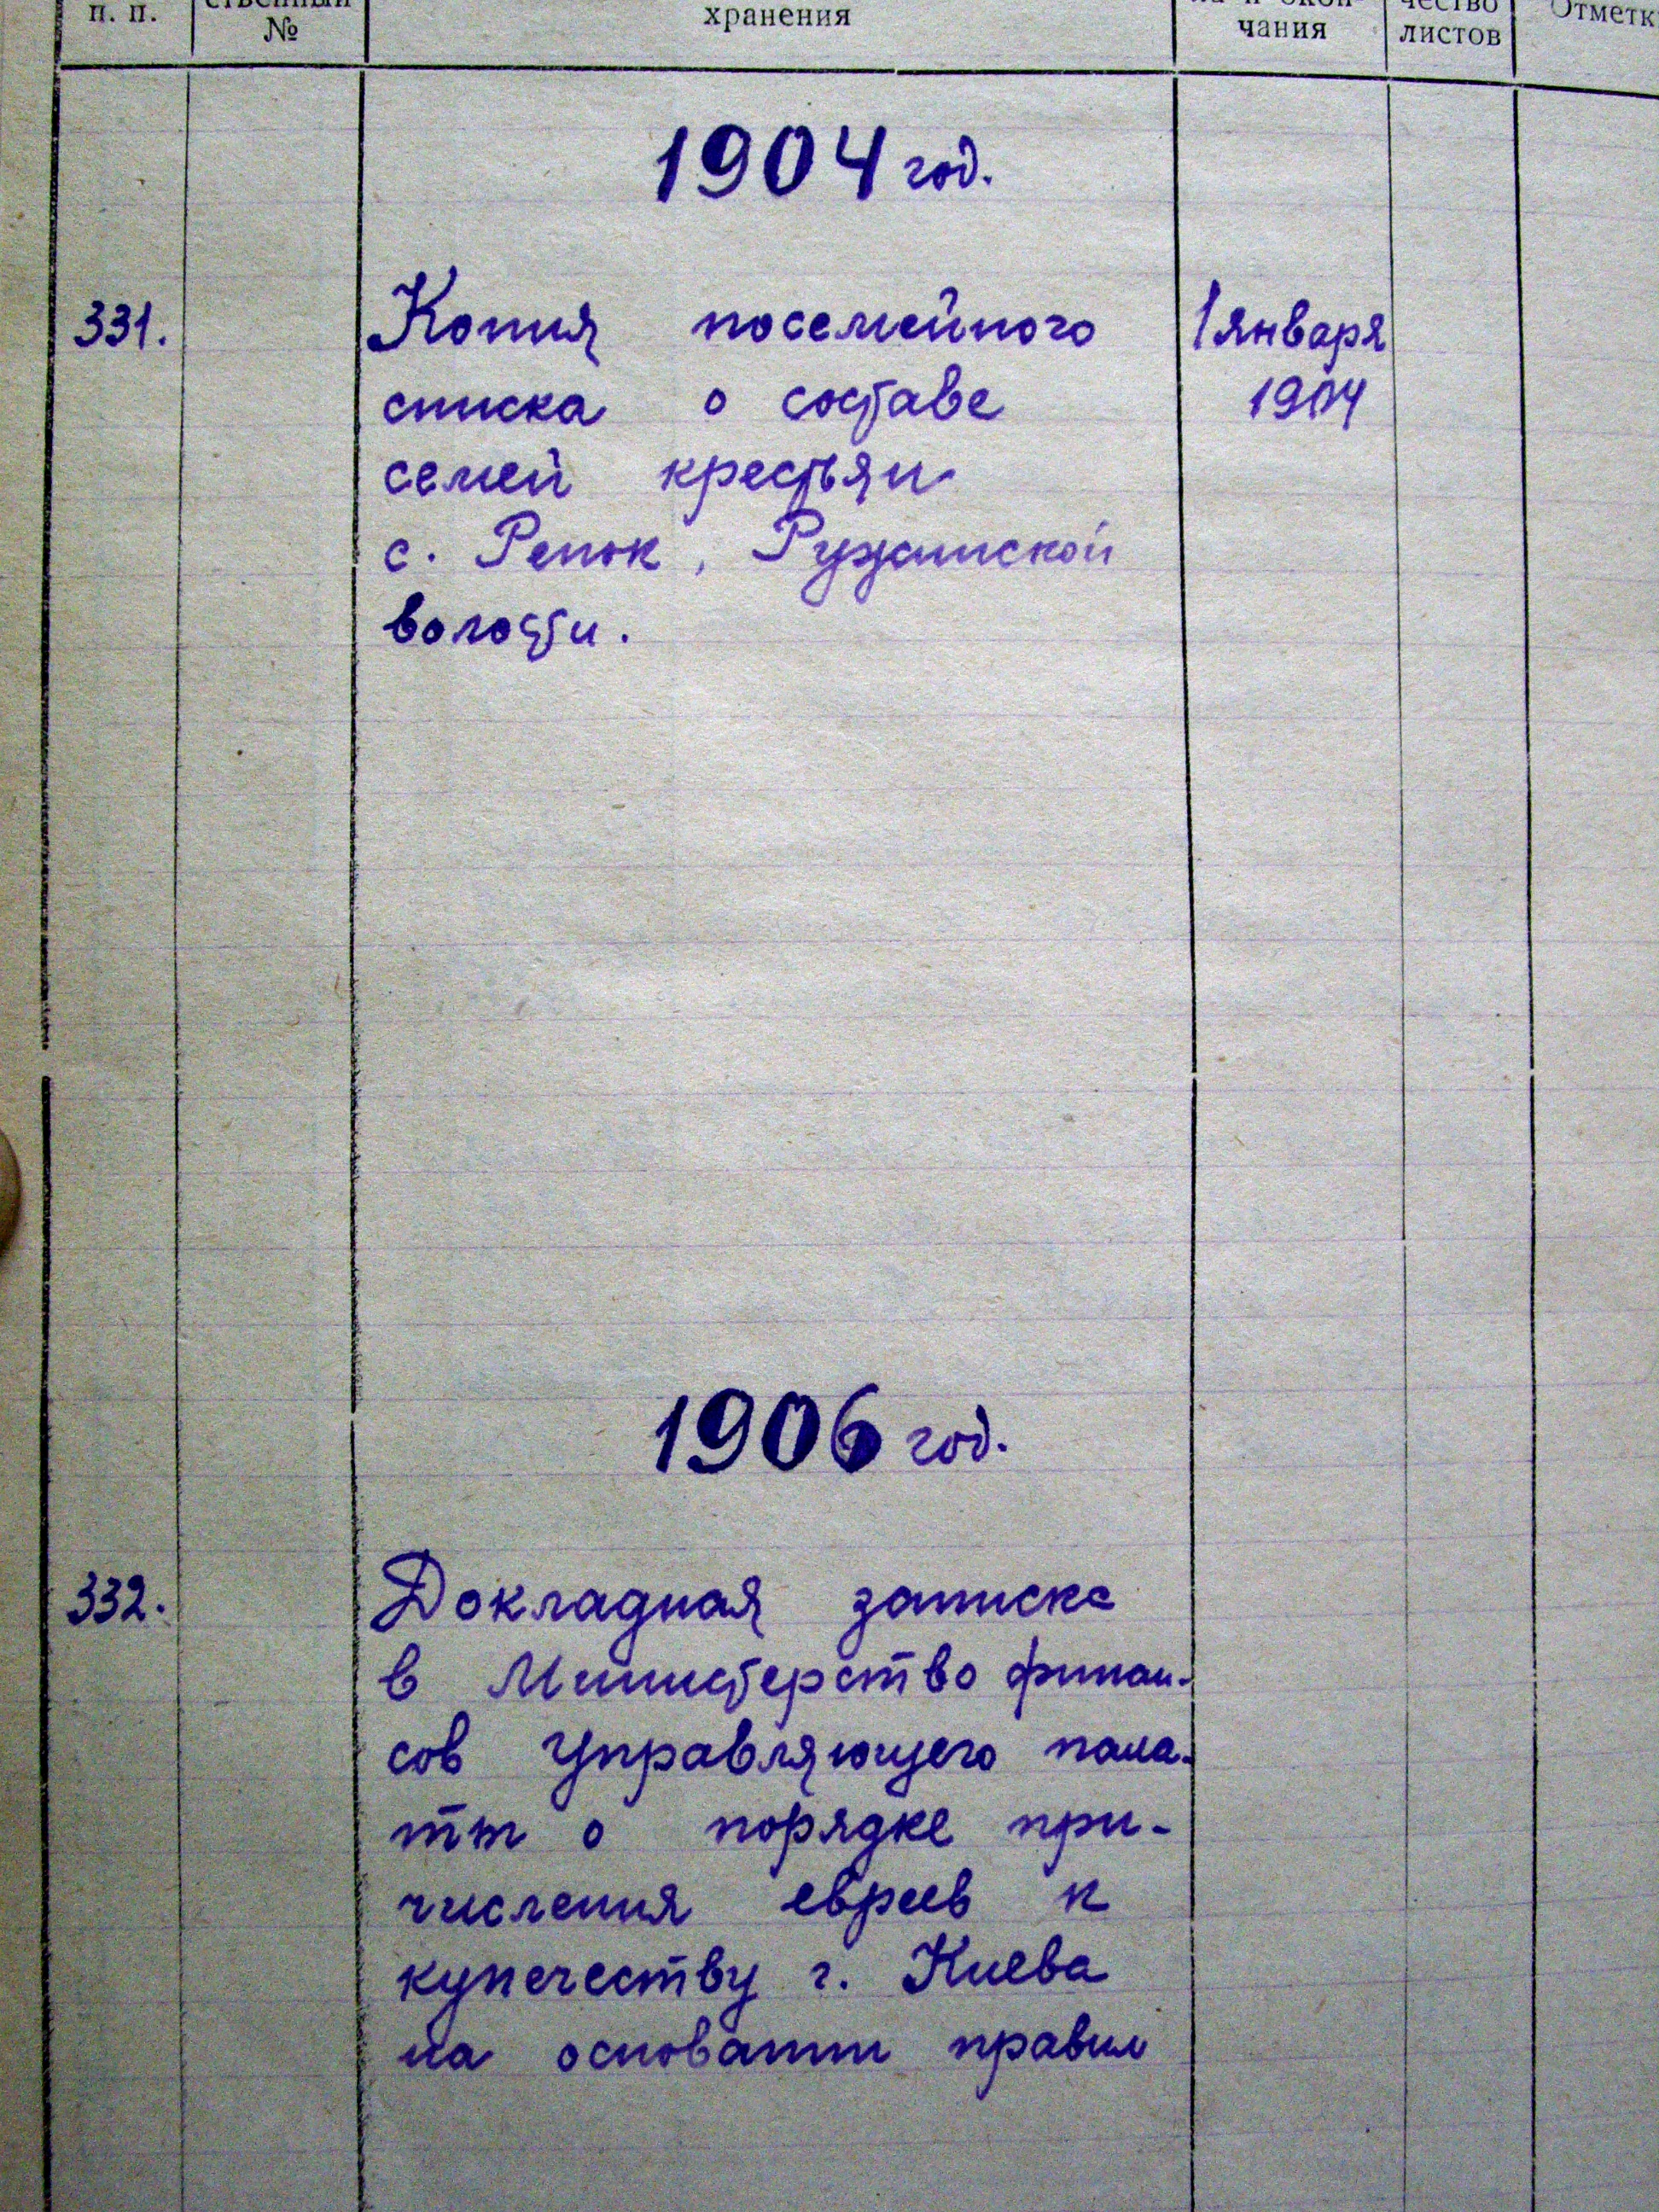 п. п.
№
хранения
чания
листов
Отметк
1904 год.
331.
Копия посемейного
списка о составе
семей крестьян
с. Репок, Ружинской
волости.
1 января
1904
1906 год.
332.
Докладная записка
в Министерство финан-
сов управляющего пала-
ты о порядке при-
числения евреев к
купечеству г. Киева
на основании правил